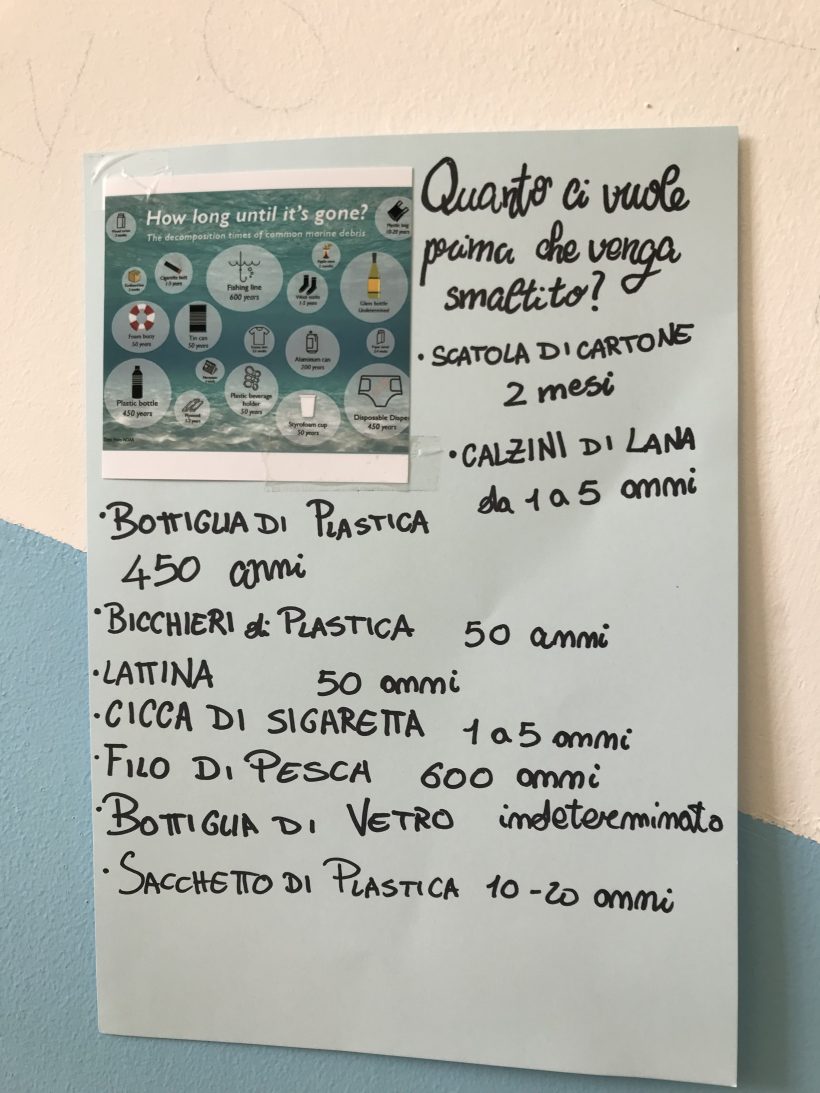 How long until it's gone?
The decomposition times of common marine debris
Plastic bag
10-20 years
Cigarette butt
1-5 years
Fishing line
600 years
Wool socks
1-5 years
Glass bottle
Undetermined
Foam buoy
50 years
Tin can
50 years
Aluminum can
200 years
Plastic bottle
450 years
Plastic beverage
holder
50 years
Styrofoam cup
50 years
Disposable Diape
450 years
Quanto ci vuole
prima che venga
smaltito?
• SCATOLA DI CARTONE
2 mesi
• CALZINI DI LANA
da 1 a 5 anni
• BOTTIGLIA DI PLASTICA
450 anni
• BICCHIERI di PLASTICA 50 anni
• LATTINA 50 anni
• CICCA DI SIGARETTA 1 a 5 anni
• FILO DI PESCA 600 anni
• BOTTIGLIA DI VETRO indeterminato
• SACCHETTO DI PLASTICA 10-20 anni